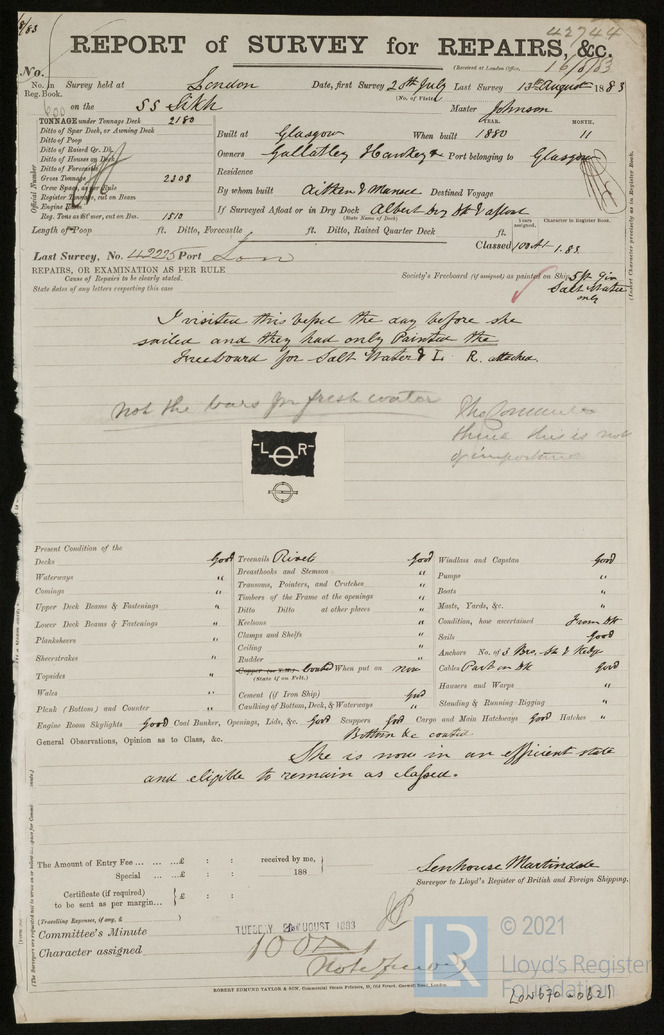 8/83
42744
REPORT of SURVEY for REPAIRS, &c.
(Received at London Office, 16/8/83
No.
No. in Reg. Book.
Survey held at London Date, first Survey 20th July Last Survey 13th August 1883
(No. of Visits)
600 on the SS Sikh Master Johnson
TONNAGE under Tonnage Deck 2180
Ditto of Spar Deck, or Awning Deck
Ditto of Poop
Ditto of Raised Qr. Dk.
Ditto of Houses on Deck
Ditto of Forecastle
Gross Tonnage 2308
Crew Space, as per Rule
Register Tonnage, cut on Beam
Engine Room
Reg. Tons as cut on Bm. 1510
Official Number
YEAR. MONTH.
Built at Glasgow When built 1880 11
Owners Gallatley Hankey & Port belonging to Glasgow
Residence
By whom built Aitken & Mansel Destined Voyage
If Surveyed Afloat or in Dry Dock Albert Dry Dk & afloat
(State Name of Dock)
Length of Poop ft. Ditto, Forecastle ft. Ditto, Raised Quarter Deck ft.
Years assigned. Character in Register Book.
Classed 100 A1 1.83
(Insert Character precisely as in Register Book.
Last Survey, No. 42225 Port Lon
REPAIRS, OR EXAMINATION AS PER RULE
Cause of Repairs to be clearly stated.
State dates of any letters respecting this case
Society's Freeboard (if assigned) as painted on Ship 5 ft
Salt Water only
I visited this vessel the day before she
sailed and they had only Painted the
Freeboard for Salt Water & L R. attached.
not the bars for fresh water
The Committee
think this is not
of importance
L R
Present Condition of the
Decks Good
Waterways "
Comings "
Upper Deck Beams & Fastenings "
Lower Deck Beams & Fastenings "
Planksheers "
Sheerstrakes "
Topsides "
Wales "
Plank (Bottom) and Counter "
Treenails Rivets Good
Breasthooks and Stemson "
Transoms, Pointers, and Crutches "
Timbers of the Frame at the openings "
Ditto Ditto at other places "
Keelsons "
Clamps and Shelfs "
Ceiling "
Rudder "
Copper (or Y.M.) Coated When put on now
(State if on Felt.)
Cement (if Iron Ship) Good
Caulking of Bottom, Deck, & Waterways "
Windlass and Capstan Good
Pumps "
Boats "
Masts, Yards, &c. "
Condition, how ascertained From Dk
Sails Good
Anchors No. of 3 Bro. St & Kedge
Cables Part on Dk Good
Hawsers and Warps "
Standing & Running Rigging "
Engine Room Skylights Good Coal Bunker, Openings, Lids, &c. Good Scuppers Good Cargo and Main Hatchways Good Hatches "
General Observations, Opinion as to Class, &c. Bottom &c coated
She is now in an efficient state
and eligible to remain as classed.
The Amount of Entry Fee £ : : received by me,
Special £ : : 188
Certificate (if required) to be sent as per margin £ : :
(Travelling Expenses, if any, £ )
Senhouse Martindale
Surveyor to Lloyd's Register of British and Foreign Shipping.
Committee's Minute TUESDAY 21 AUGUST 1883
Character assigned 100 A1
ROBERT EDMUND TAYLOR & SON, Commercial Steam Printers, 19, Old Street, Goswell Road, London.
LR
© 2021
Lloyd's Register
Foundation
LON670-0621